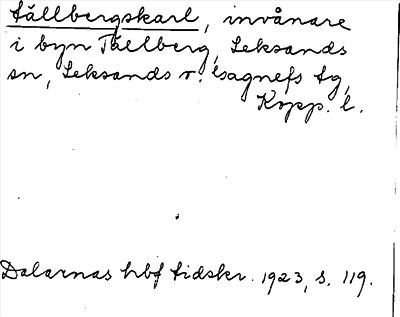 tällbergskarl, invånare
i byn Tällberg, Leksands
sn, Leksands o. Gagnefs tg,
Kopp. l.
Dalarnas hbf tidskr. 1923, s. 119.